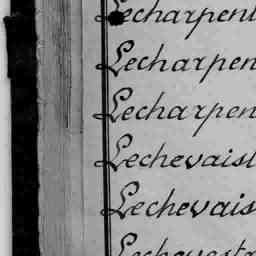 Lecharpent
Lecharpen
Lecharpen
Lechevaisl
Lechevais
Lechevesta